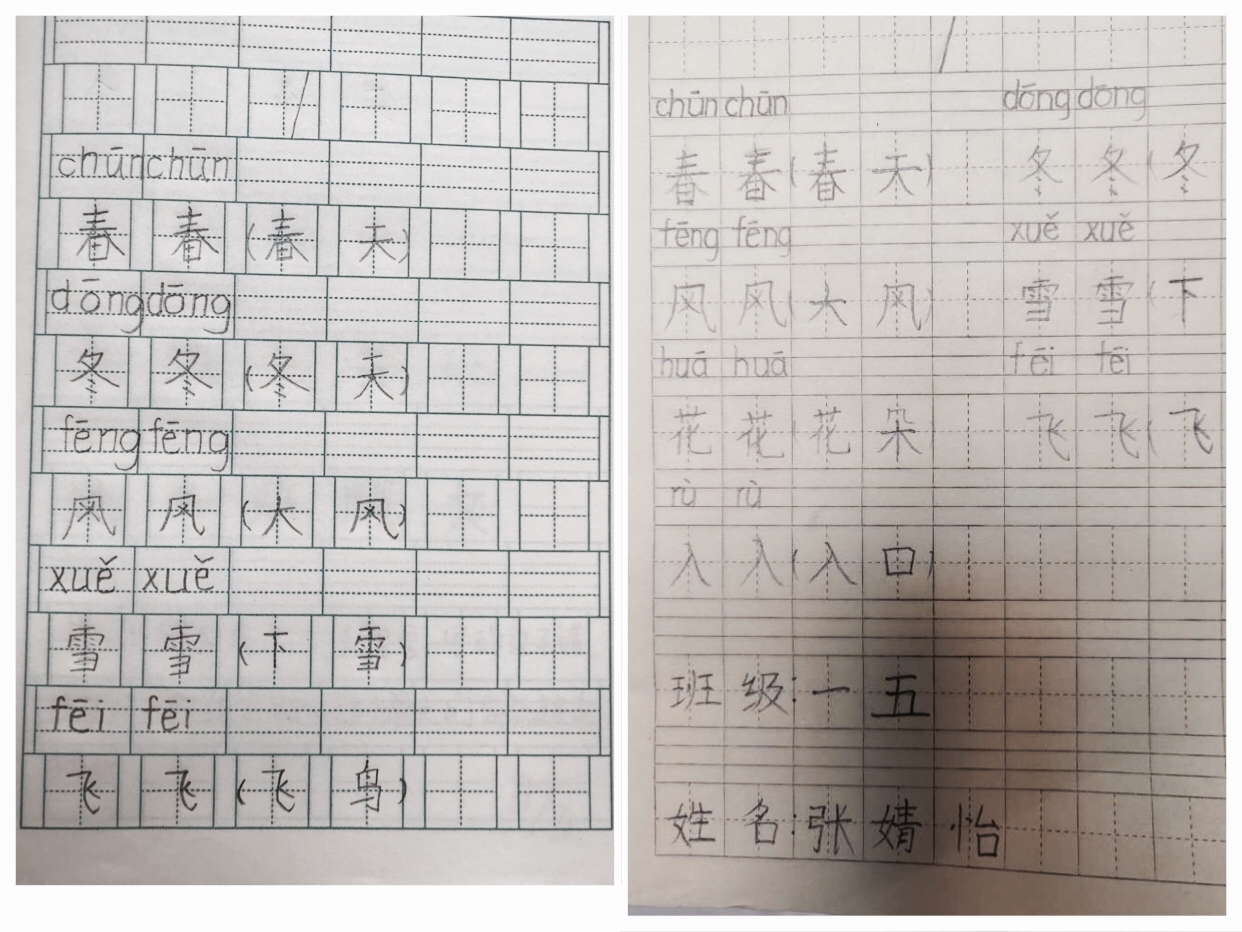 chūn chūn
春 春 (春 天)
dōng dōng
冬 冬 (冬 天)
fēng fēng
风 风 (大 风)
xuě xuě
雪 雪 (下 雪)
fēi fēi
飞 飞 (飞 鸟)
chūn chūn dōng dōng
春 春 (春 天) 冬 冬 (冬
fēng fēng xuě xuě
风 风 (大 风) 雪 雪 (下
huā huā fēi fēi
花 花 (花 朵) 飞 飞 (飞
rù rù
入 入 (入 口)
班 级: 一 五
姓 名: 张 婧 怡